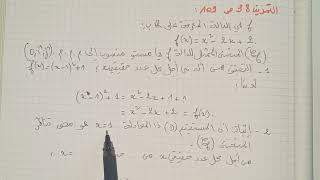 التمرين 38 ص 109:
f هي الدالة المعرفة على ℝ بـ:
f(x) = x² - 2x + 2
(Cf) المنحني الممثل للدالة f في مستو منسوب إلى م.م.م (O, i, j)
1 - التحقق من أنه من أجل كل عدد حقيقي x: f(x)=(x-1)²+1
لدينا:
(x-1)²+1 = x²-2x+1+1
= x²-2x+2 = f(x).
2 - إثبات أن المستقيم (D) ذا المعادلة x=1 هو محور تناظر
(Cf)
من أجل كل عدد حقيقي x من